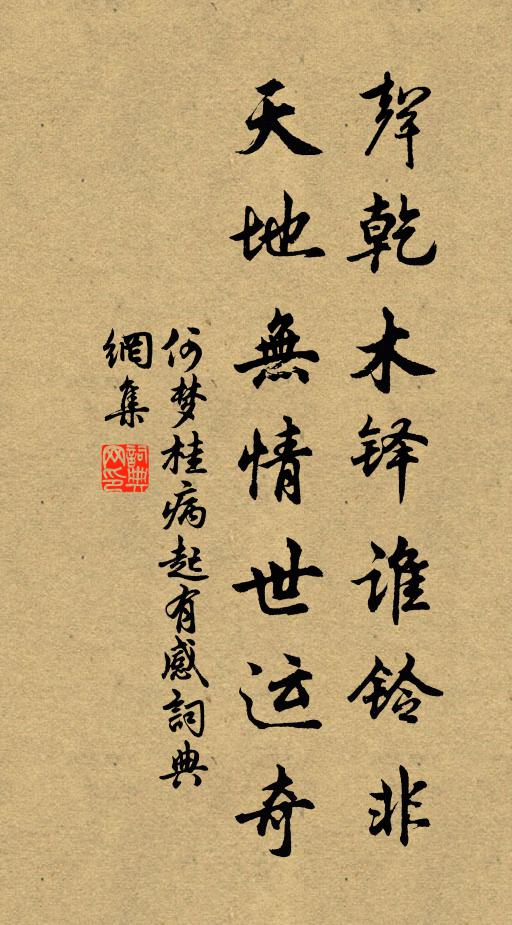 声乾木铎谁铃非
天地無情世运奇
何梦桂病起有感詞典
網集
詞典
网印